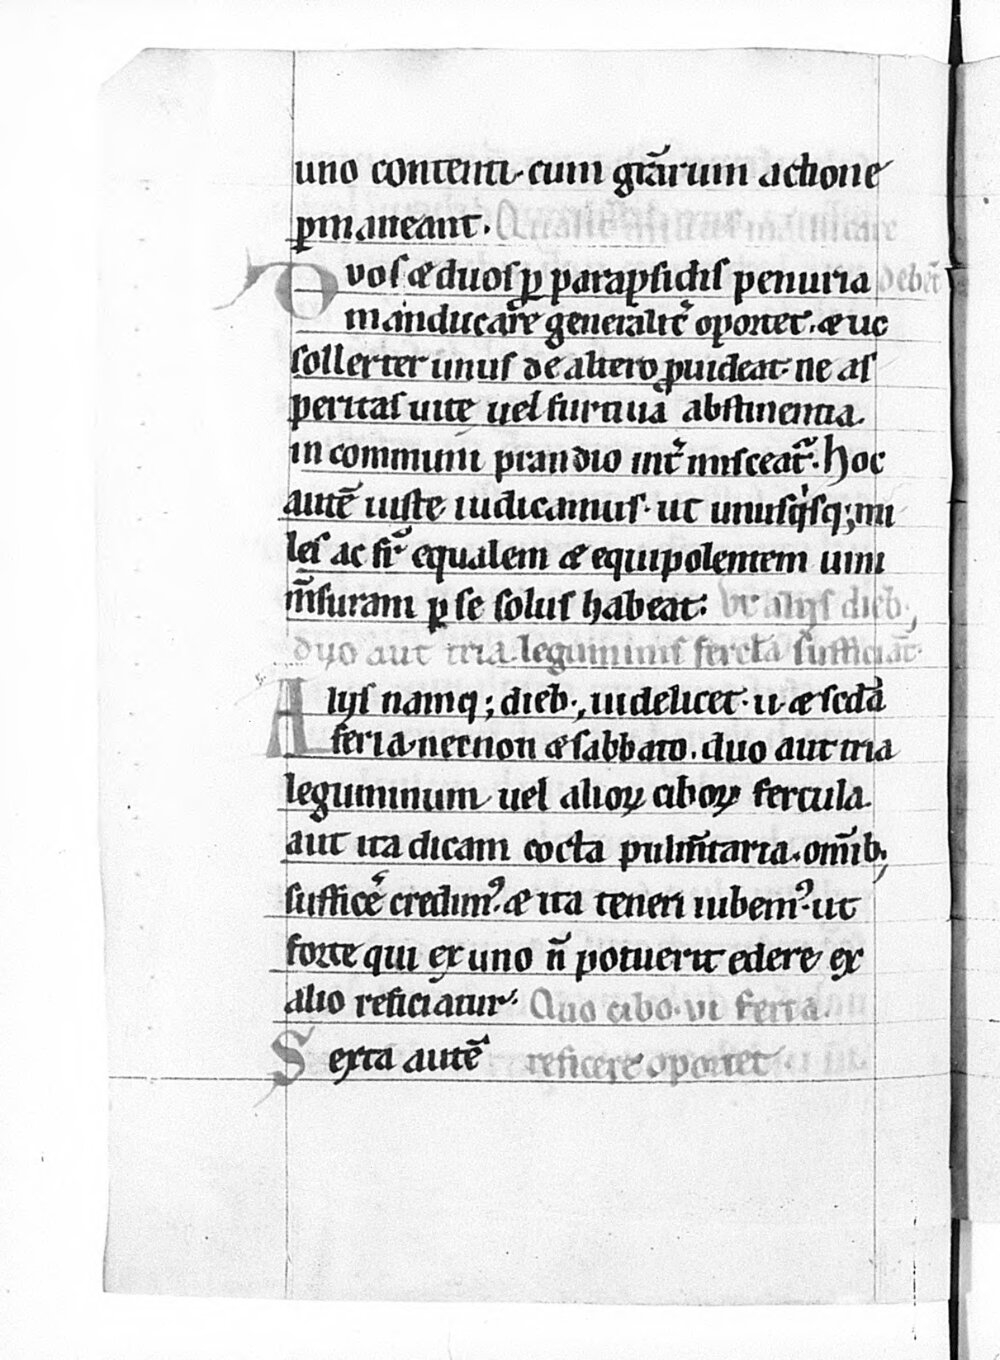 uno contenti · cum gr̄arum actione
ꝑmaneant. Qualit̄ milites manducare
Duos &duos ꝓ parapsidis penuria debēt
manducare generalit̄ oportet. & ut
sollerter unus de altero ꝓuideat· ne as
peritas uite uel furtiua abstinentia.
in communi prandio int̄ misceat᷑. hoc
autē iuste iudicamus· ut unusq'sq; mi
les ac fr̄ equalem & equipolentem uini
m̄suram ꝑ se solus habeat: Vt aliis dieb;
duo aut tria leguminis fercla sufficiāt·
Aliis namq; dieb; uidelicet · ii· & scd̄a
feria necnon & sabbato. duo aut tria
leguminum uel alioꝝ ciboꝝ fercula.
aut ita dicam cocta pulm̄taria. om̄ib;
suffic̄e credimꝰ. & ita teneri iubemꝰ· ut
forte qui ex uno n̄ potuerit edere ex
alio reficiatur. Quo cibo · vi feria.
Sexta autē reficere oportet